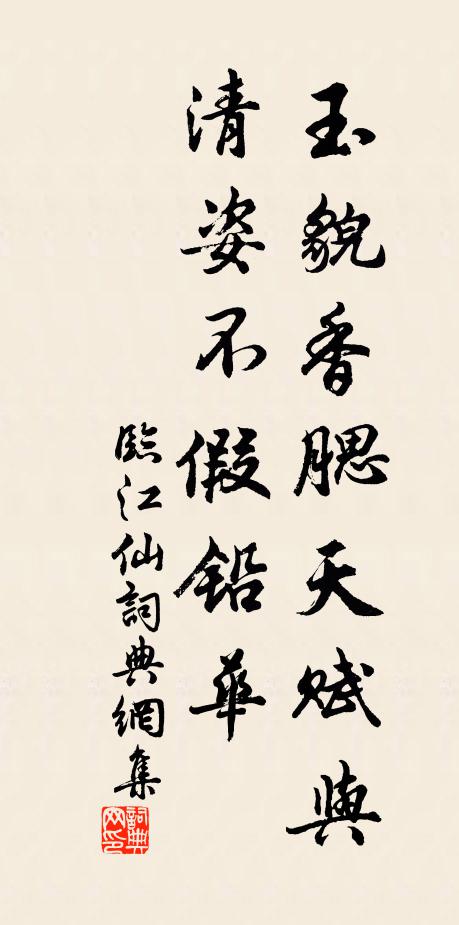 玉貌香腮天賦與
清姿不假鉛華
臨江仙詞典網集
詞典
网印